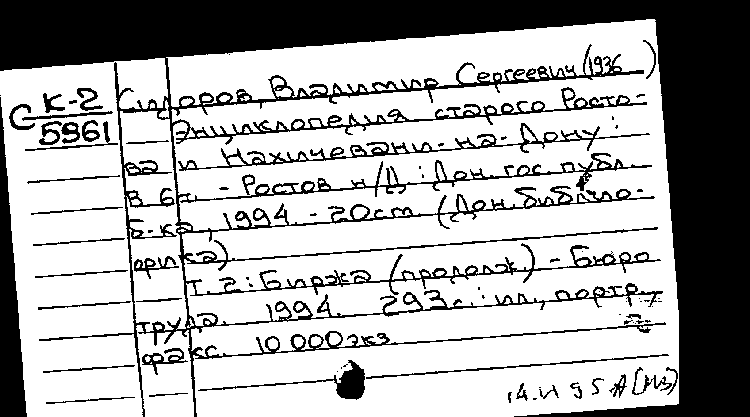 С К-2
5961
Сидоров, Владимир Сергеевич (1936 )
Энциклопедия старого Росто-
ва и Нахичевани-на-Дону:
в 6т. - Ростов н/Д : Дон. гос. публ.
б-ка, 1994. - 20см (Дон. библио-
филка)
Т. 2: Биржа (продолж.) - Бюро
труда. 1994. 293с.: ил., портр.,
факс. 10 000экз.